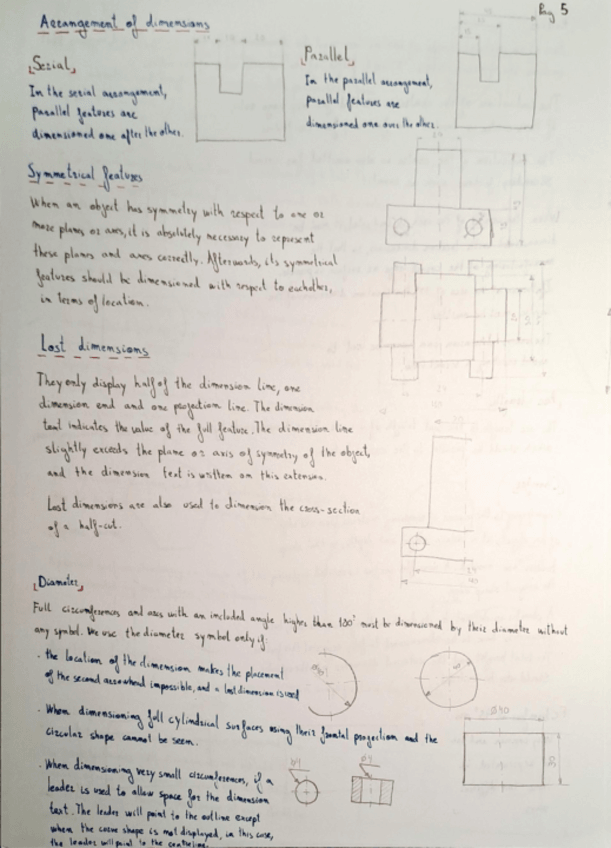 Pag 5
Arrangement of dimensions
Serial
In the serial arrangement,
parallel features are
dimensioned one after the other.
Parallel
In the parallel arrangement,
parallel features are
dimensioned one over the other.
Symmetrical features
When an object has symmetry with respect to one or
more planes or axes, it is absolutely necessary to represent
these planes and axes correctly. Afterwards, its symmetrical
features should be dimensioned with respect to eachother,
in terms of location.
Lost dimensions
They only display half of the dimension line, one
dimension end and one projection line. The dimension
text indicates the value of the full feature. The dimension line
slightly exceeds the plane or axis of symmetry of the object,
and the dimension text is written on this extension.
Lost dimensions are also used to dimension the cross-section
of a half-cut.
Diameter
Full circumferences and axis with an included angle higher than 180° must be dimensioned by their diameter without
any symbol. We use the diameter symbol only if:
· the location of the dimension makes the placement
of the second arrowhead impossible, and a lost dimension is used
· When dimensioning full cylindrical surfaces using their frontal projection and the
circular shape cannot be seen.
Ø40
30
· When dimensioning very small circumferences, if a
leader is used to allow space for the dimension
text. The leader will point to the outline except
when the curve shape is not displayed, in this case,
the leader will point to the centreline.